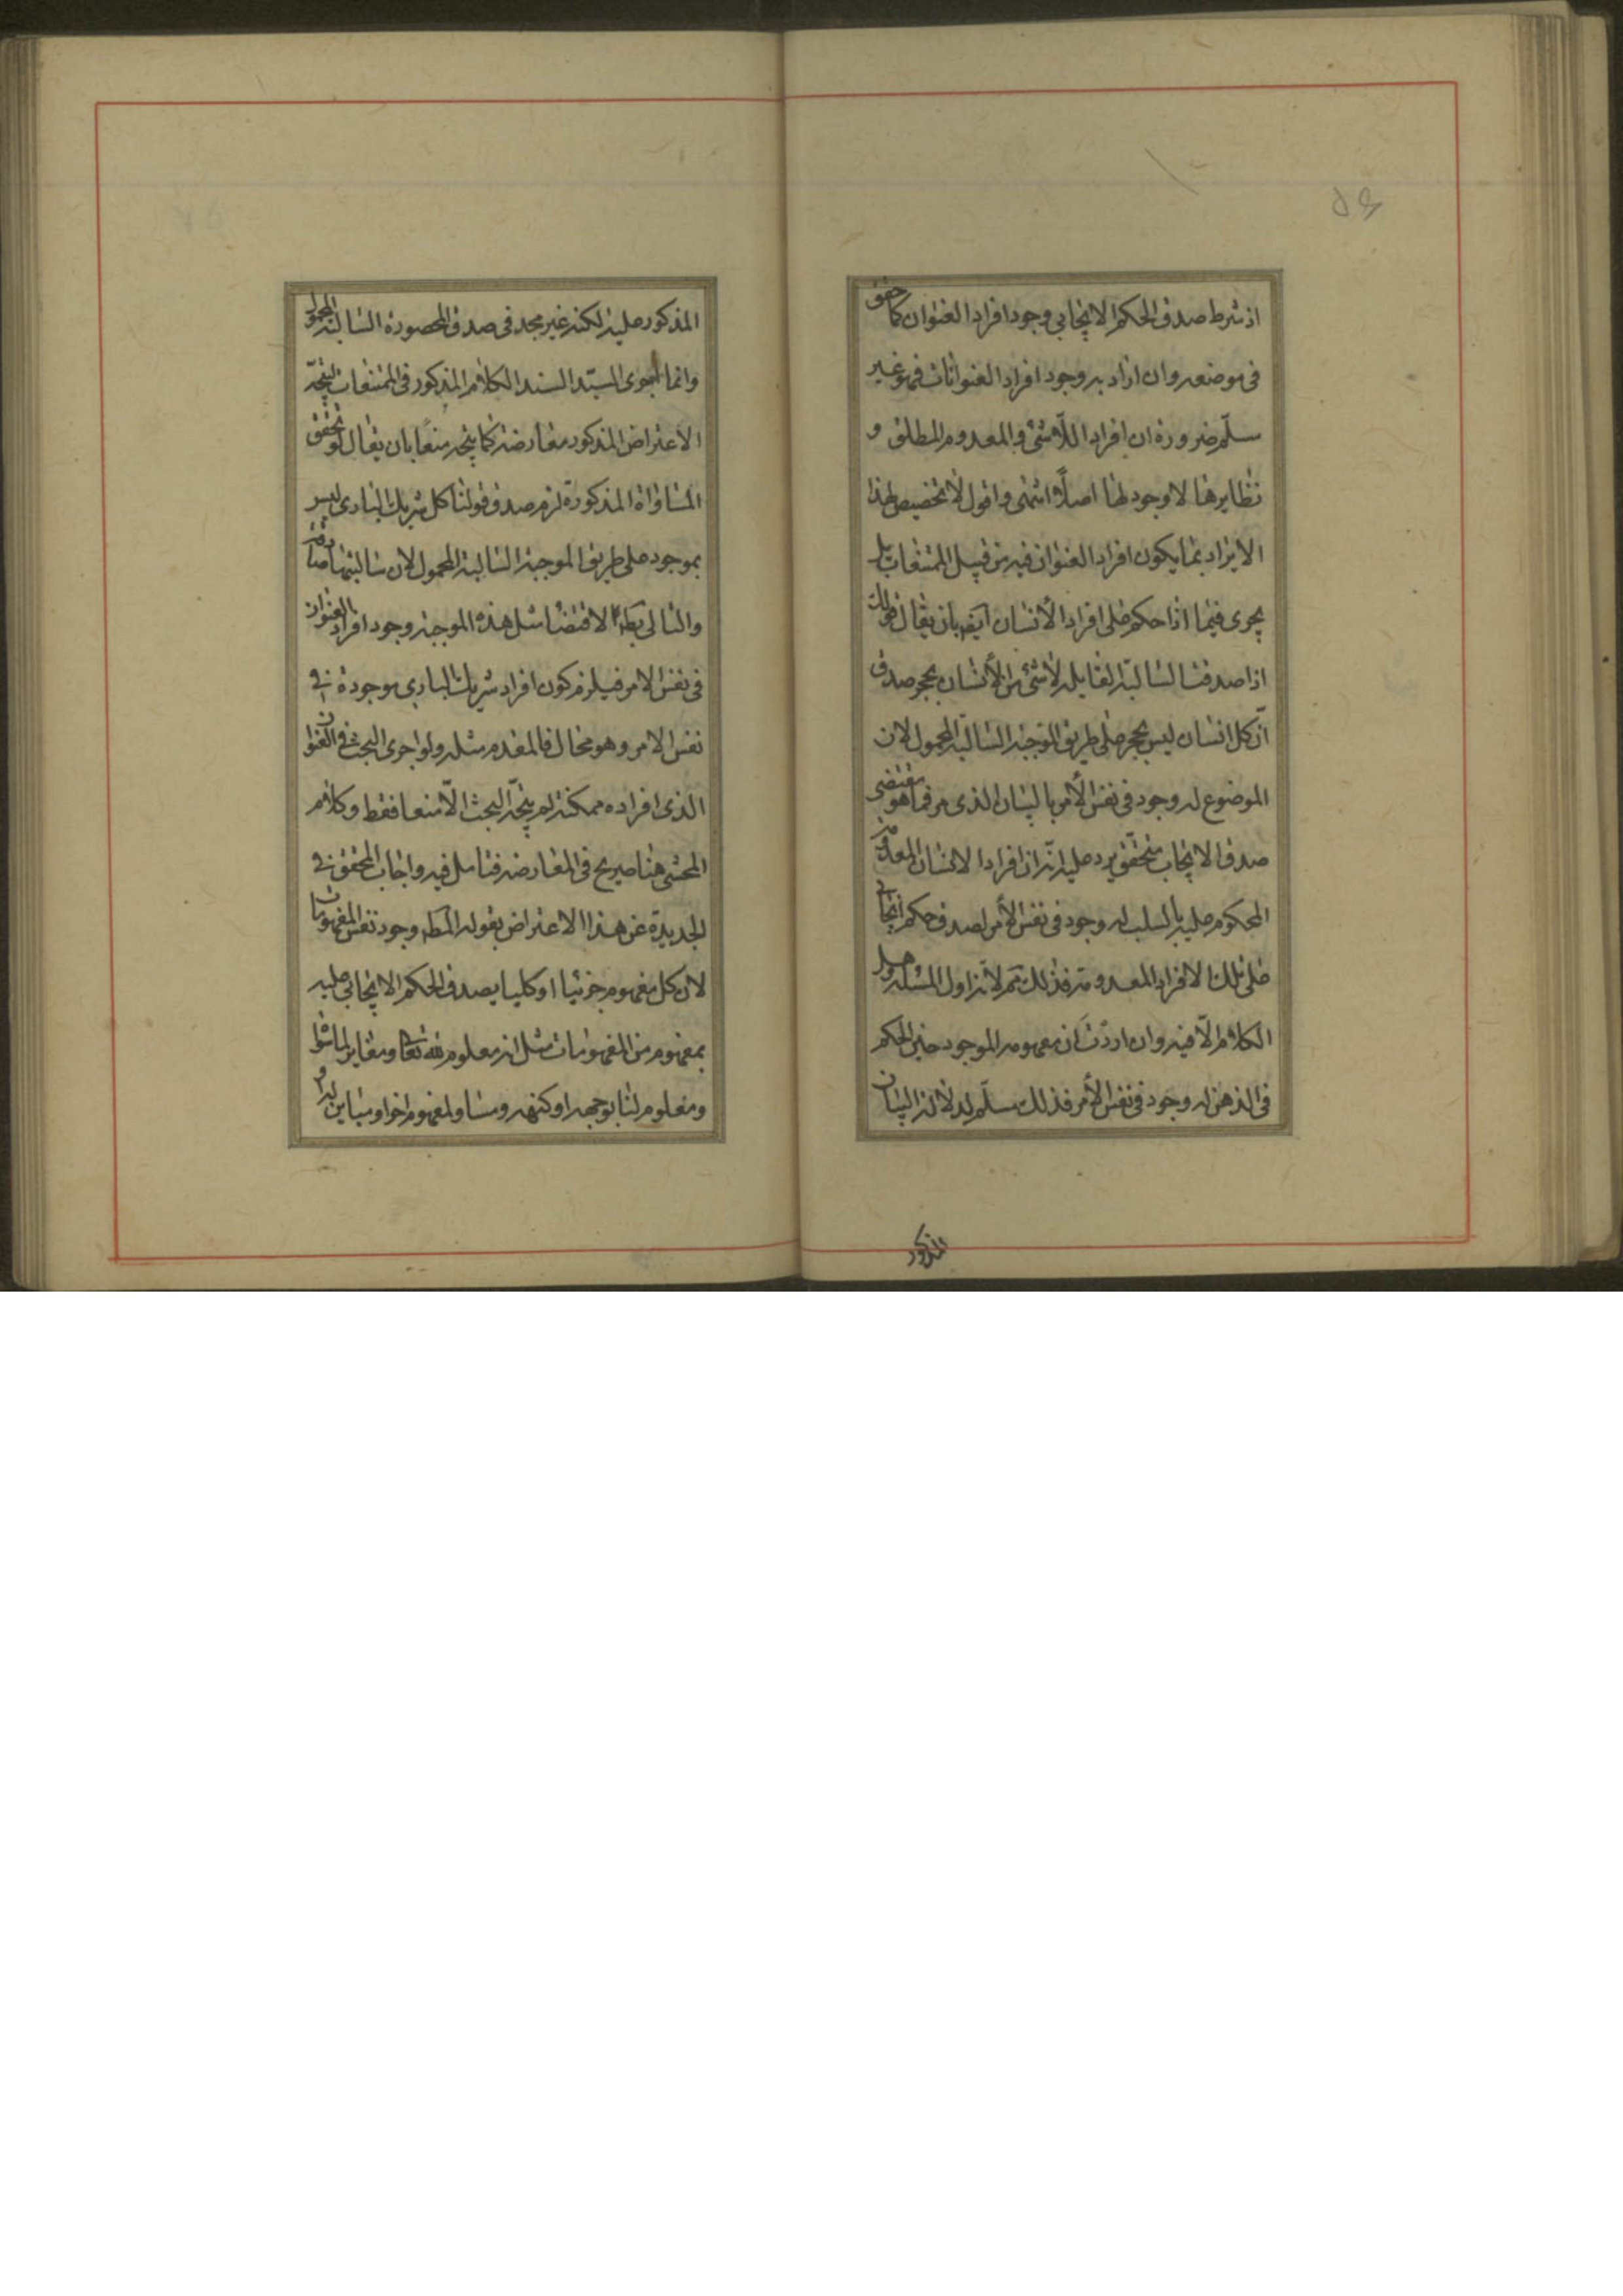 اذ شرط صدق الحكم الايجابي وجود افراد العنوان كما حقق
في موضعه وان اراد به وجود افراد العنوانات فهو غير
مسلّم ضرورة ان افراد اللاشئ و المعدوم المطلق و
نظايرها لا وجود لها اصلاً انتهى واقول لا تخصيص لهذا
الايراد بما يكون افراد العنوان فيه من قبيل الممتنعات بل
يجرى فيما اذا حكم على افراد الأنسان ايضا بان يقال قولك
اذا صدقت السالبة القايله لا شئ من الأنسان بحجر صدق
انّ كل انسان ليس بحجر على طريق الموجبة السالبة المحمول لان
الموضوع له وجود في نفس الأمر بالبيان الذى مر فما هو مقتضى
صدق الايجاب متحقق يرد عليه انه ان افراد الانسان المعدومة
المحكوم عليه بالسلب له وجود في نفس الأمر لصدق حكم ايجابى
على تلك الافراد المعدومة فذلك ثم لا تزاول المسئله وهل
الكلام الّا فيه وان اردت ان مفهومه الموجود حين الحكم
في الذهن له وجود في نفس الأمر فذلك مسلّم لدلالة البيان
المذكور
المذكور عليه لكنه غير مجد في صدق المحصورة السالبة المحمول
وانما اجرى السيّد السند الكلام المذكور في الممتنعات ليتجّه
الاعتراض المذكور معارضة كما يتجه منعًا بان يقال لو تحقق
المساواة المذكورة لزم صدق قولنا كل شريك البارى ليس
بموجود على طريق الموجبة السالبة المحمول لان سالبتها صادقة
والتالى بط لاقتضا مثل هذه الموجبة وجود افراد العنوان
في نفس الامر فيلزم كون افراد شريك البارى موجودة في
نفس الامر وهو محال فالمقدم مثله ولو اجرى البحث في العنوان
الذى افراده ممكنة لم يتجّه البحث الّا منعا فقط وكلام
المحشى هنا صريح في المعارضه فتامل فيه واجاب المحقق في
الجديدة عن هذا الاعتراض بقوله المط وجود نفس المفهومات
لان كل مفهوم جزئيا او كليا يصدق الحكم الايجابى عليه
بمفهوم من المفهومات مثل انه معلوم لله تعالى ومغاير لما سواه
ومعلوم لنا بوجهه او كنهه ومساو لمفهوم اخر او مباين له و